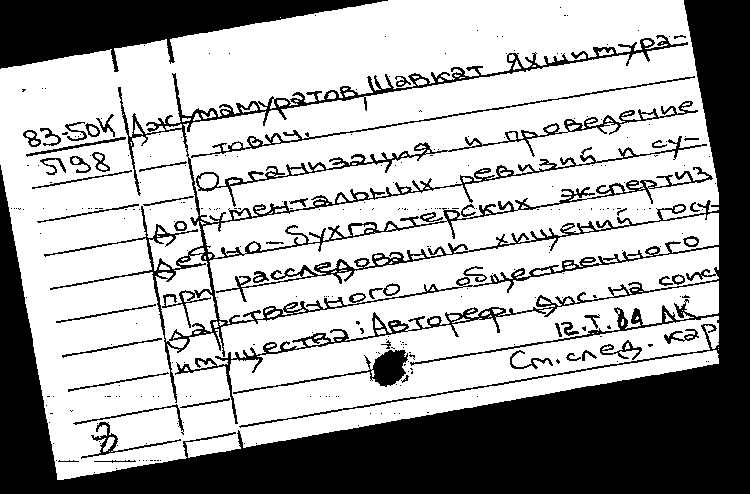 83-50К Джумамуратов, Шавкат Яхшимура-
5198 тович.
Организация и проведение
документальных ревизий и су-
дебно-бухгалтерских экспертиз
при расследовании хищений госу-
дарственного и общественного
имущества: Автореф. дис. на соиск
12.I.84 ЛК
См. след. кар